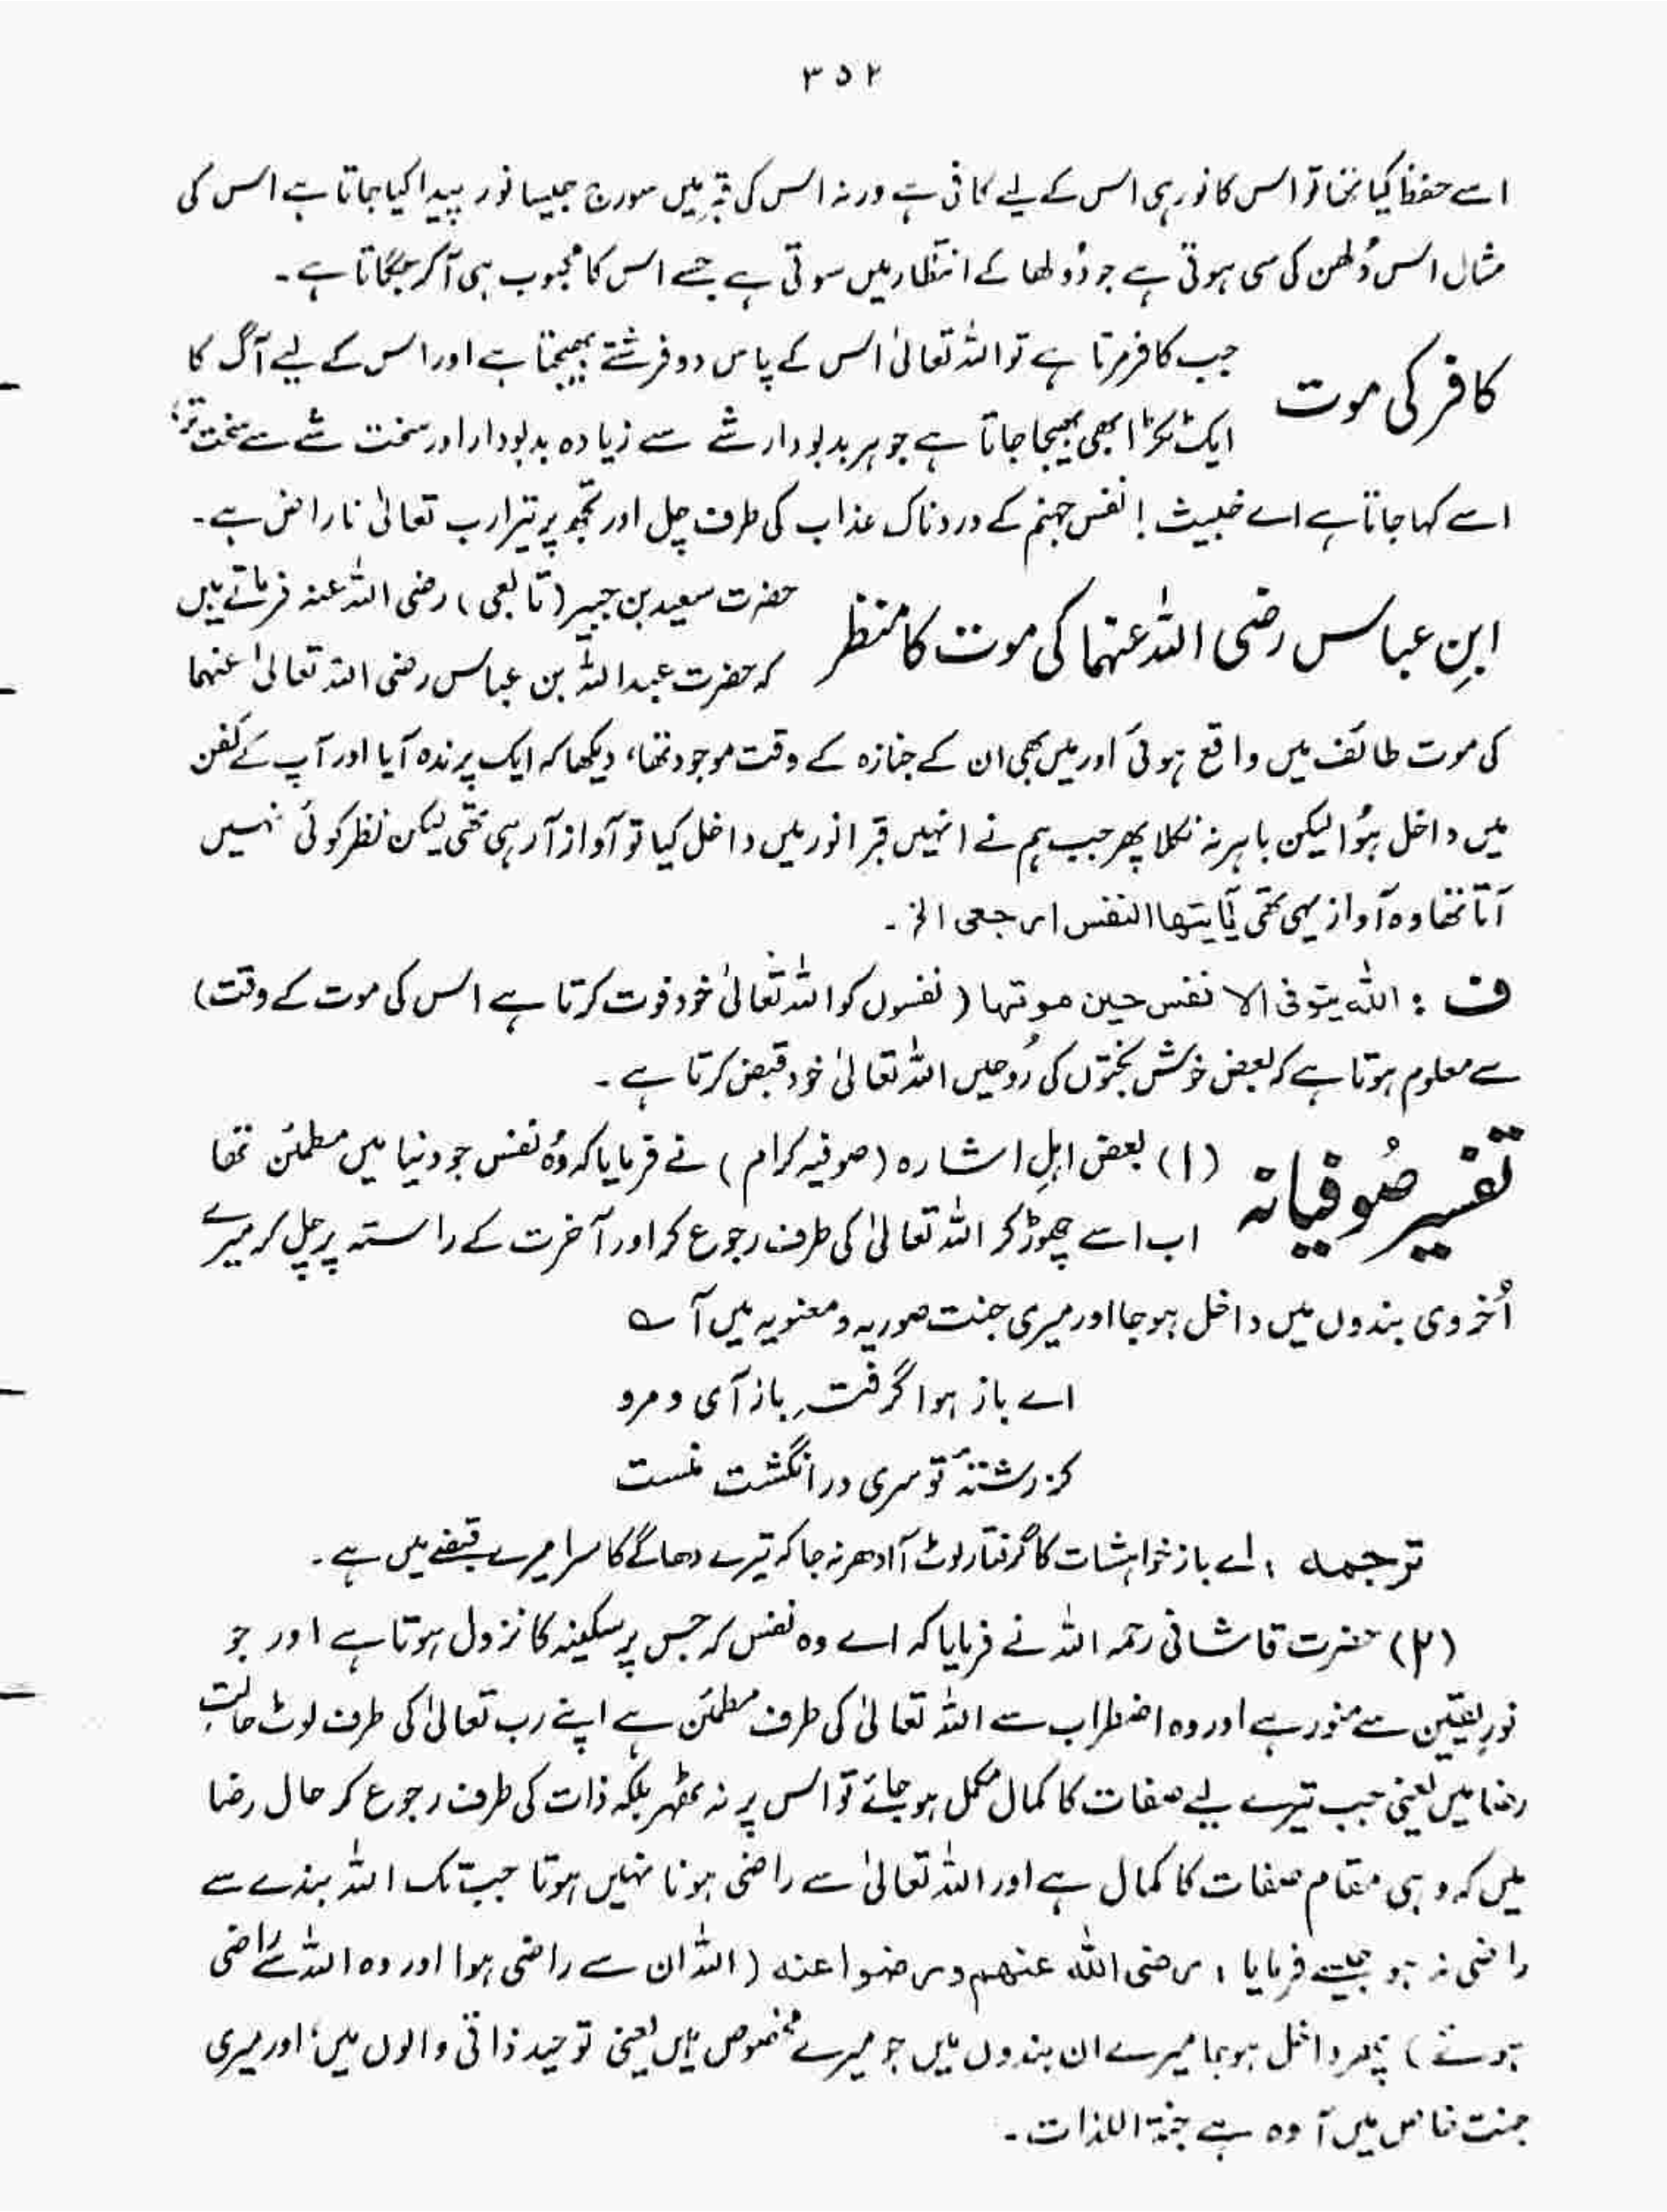 ۳۵۲
اسے حفظ کیا تھا تو اس کا نور ہی اس کے لیے کافی ہے ورنہ اس کی قبر میں سورج جیسا نور پیدا کیا جاتا ہے اس کی
مثال اس دُلھن کی سی ہوتی ہے جو دُولھا کے انتظار میں سوتی ہے جسے اس کا محبوب ہی آ کر جگاتا ہے۔
کافر کی موت
جب کافر مرتا ہے تو اللہ تعالیٰ اس کے پاس دو فرشتے بھیجتا ہے اور اس کے لیے آگ کا
ایک ٹکڑا بھی بھیجا جاتا ہے جو ہر بدبودار شے سے زیادہ بدبودار اور سخت شے سے سخت تر،
اسے کہا جاتا ہے اے خبیث! نفس جہنم کے دردناک عذاب کی طرف چل اور تجھ پر تیرا رب تعالیٰ ناراض ہے۔
ابنِ عباس رضی اللہ عنہما کی موت کا منظر
حضرت سعید بن جبیر (تابعی) رضی اللہ عنہ فرماتے ہیں
کہ حضرت عبداللہ بن عباس رضی اللہ تعالیٰ عنہما
کی موت طائف میں واقع ہوئی اور میں بھی ان کے جنازہ کے وقت موجود تھا، دیکھا کہ ایک پرندہ آیا اور آپ کے کفن
میں داخل ہُوا لیکن باہر نہ نکلا پھر جب ہم نے انہیں قبر انور میں داخل کیا تو آواز آ رہی تھی لیکن نظر کوئی نہیں
آتا تھا وہ آواز یہی تھی یٰٓایتھا النفس ارجعی الخ۔
ف : اللہ یتوفی الانفس حین موتہا (نفسوں کو اللہ تعالیٰ خود فوت کرتا ہے اس کی موت کے وقت)
سے معلوم ہوتا ہے کہ بعض خوش بختوں کی رُوحیں اللہ تعالیٰ خود قبض کرتا ہے۔
تفسیر صُوفیانہ
(۱) بعض اہلِ اشارہ (صوفیہ کرام) نے فرمایا کہ وُہ نفس جو دنیا میں مطمئن تھا
اب اسے چھوڑ کر اللہ تعالیٰ کی طرف رجوع کر اور آخرت کے راستہ پر چل کر میرے
اُخروی بندوں میں داخل ہو جا اور میری جنت صوریہ و معنویہ میں آ ؎
اے باز ہوا گرفت باز آی و مرو
کز رشتۂ تو سری در انگشت منست
ترجمہ : اے باز خواہشات کا گرفتار لوٹ آ ادھر نہ جا کہ تیرے دھاگے کا سرا میرے قبضے میں ہے۔
(۲) حضرت قاشانی رحمہ اللہ نے فرمایا کہ اے وہ نفس کہ جس پر سکینہ کا نزول ہوتا ہے اور جو
نورِ یقین سے منور ہے اور وہ اضطراب سے اللہ تعالیٰ کی طرف مطمئن ہے اپنے رب تعالیٰ کی طرف لوٹ حالتِ
رضا میں یعنی جب تیرے لیے صفات کا کمال مکمل ہو جائے تو اس پر نہ ٹھہر بلکہ ذات کی طرف رجوع کر حال رضا
میں کہ وہی مقام صفات کا کمال ہے اور اللہ تعالیٰ سے راضی ہونا نہیں ہوتا جب تک اللہ بندے سے
راضی نہ ہو جیسے فرمایا : رضی اللہ عنھم ورضوا عنہ (اللہ ان سے راضی ہوا اور وہ اللہ سے راضی
ہوئے) پھر داخل ہو جا میرے ان بندوں میں جو میرے مخصوص ہیں یعنی توحید ذاتی والوں میں، اور میری
جنت خاص میں آ وہ ہے جنۃ اللذات۔